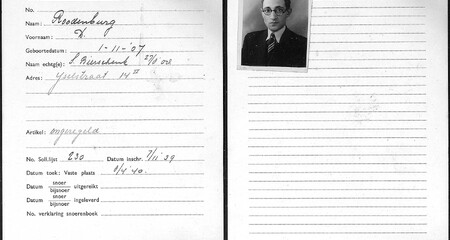 No:
Naam: Roodenburg
Voornaam: D.
Geboortedatum: 1-11-'07
Naam echtg(e): S. Bierschenk
Adres: IJselstraat 14 II
Artikel: ongeregeld
No. Soll.lijst 230 Datum inschr. 7/11 '39
Datum zoek: Vaste plaats 1/4 '40.
Datum snoer bijsnoer uitgereikt
Datum snoer bijsnoer ingeleverd
No. verklaring snoerenboek